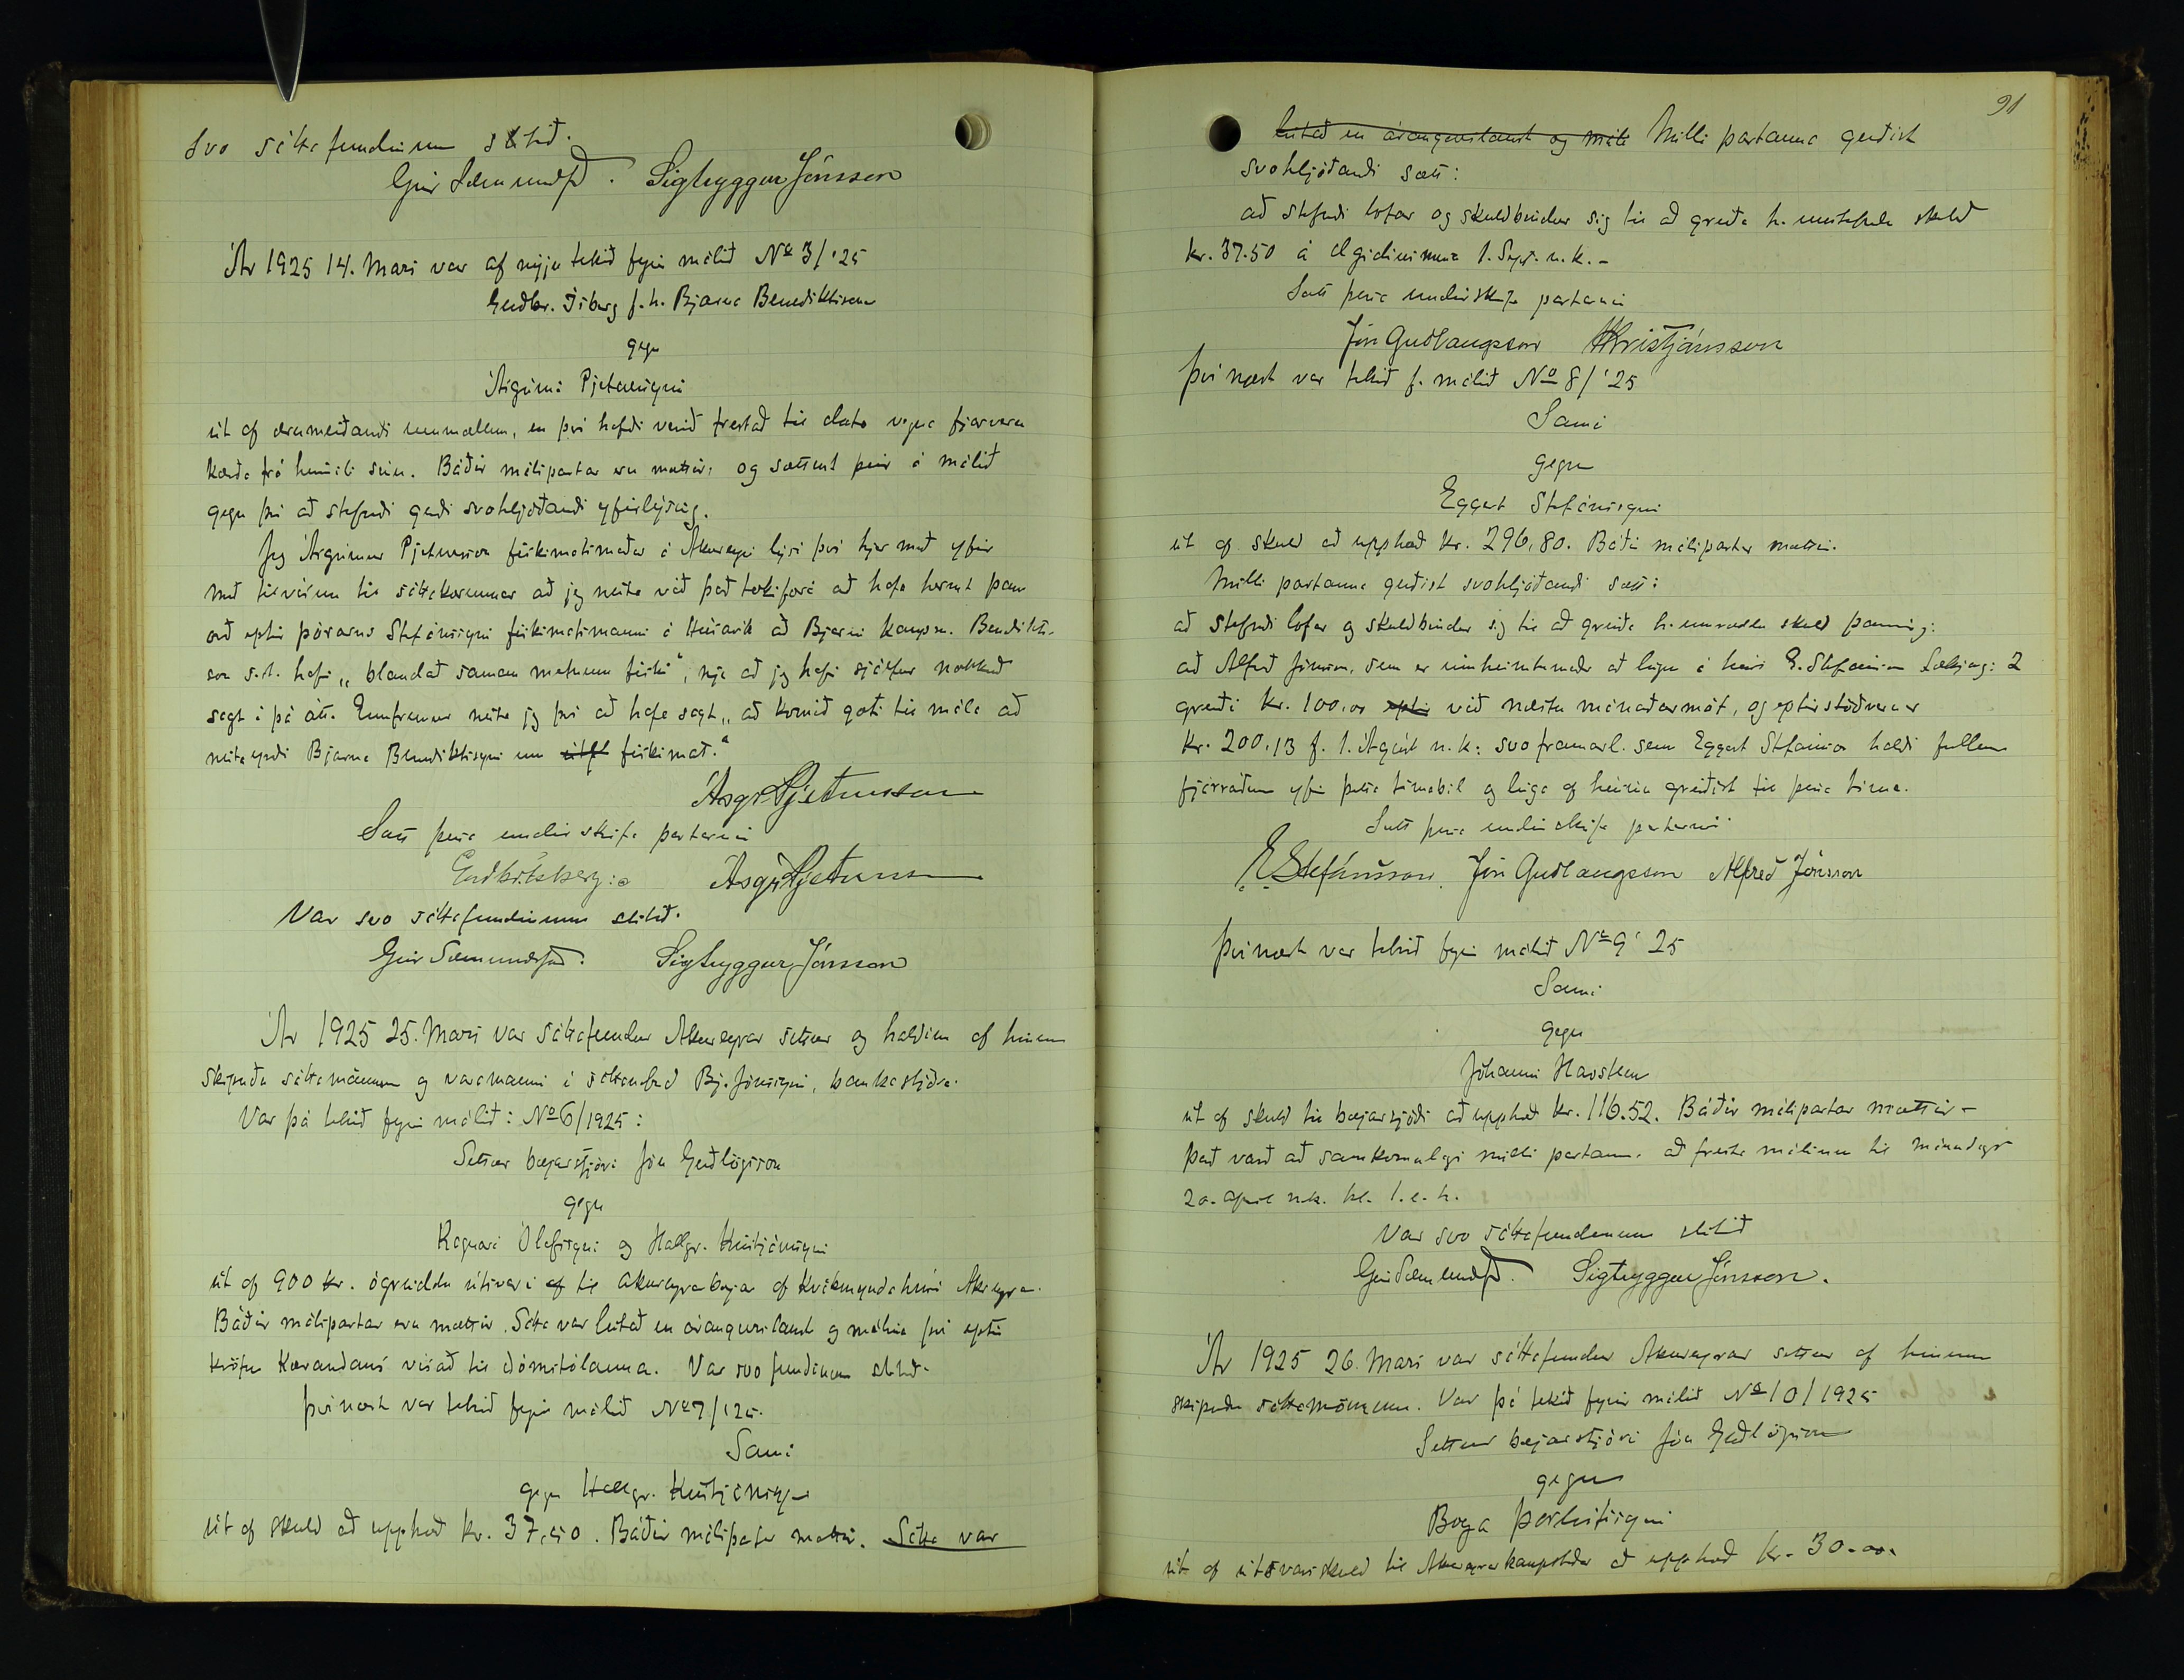 Svo sáttafundinum slitið.
Geir Sæmundsson. Sigtryggur Jónsson
Ár 1925 14. Mars var af nýju tekið fyrir málið No 3/'25
Guðbr. Ísberg f.h. Bjarna Benediktssonar
gegn
Ásgrími Pjeturssyni
út af ærumeiðandi ummælum, en því hafði verið frestað til dato vegna fjarveru
kærða frá heimili sínu. Báðir málspartar eru mættir og sættust þeir á málið
gegn því að stefndi gerði svohljóðandi yfirlýsing.
Jeg Ásgrímur Pjetursson fiskimatsmaður á Akureyri lýsi því hjer með yfir
með tilvísun til sáttakærunnar að jeg neita við það tækifæri að hafa hermt þau
orð eptir Þórarni Stefánssyni fiskimatsmanni á Húsavík að Bjarni kaupm. Benedikts-
son s.st. hafi „blandað saman metnum fiski“, nje að jeg hafi sjálfur nokkuð
sagt í þá átt. Ennfremur neita jeg því að hafa sagt „að komið gæti til mála að
neita yrði Bjarna Benediktssyni um útfl fiskimat.“
Ásgr Pjetursson
Sátt þessa undirskrifa partarnir
Guðbr Ísberg Ásgr Pjetursson
Var svo sáttafundinum slitið.
Geir Sæmundsson. Sigtryggur Jónsson
Ár 1925 25. Mars var sáttafundur Akureyrar settur og haldinn af hinum
skipuðu sáttamönnum og varamanni í sáttanefnd Bj. Jónssyni, bankastjóra.
Var þá tekið fyrir málið: No 6/1925:
Settur bæjarstjóri Jón Guðlögsson
gegn
Ragnari Ólafssyni og Hallgr. Kristjánssyni
út af 900 kr. ógreiddu útsvari af til Akureyrarbæjar af Kvikmyndahúsi Akureyrar.
Báðir málspartar eru mættir. Sátta var leitað en árangurslaust og málinu því eptir
kröfu kærandans vísað til dómstólanna. Var svo fundinum slitið.
Því næst var tekið fyrir málið No 7/'25.
Sami
gegn Hallgr. Kristjánssyni
út af skuld að upphæð kr. 37,50. Báðir málspartar mættir. Sátta var
91
leitað en árangurslaust og máli Milli partanna gerðist
svohljóðandi sátt:
að stefndi lofar og skuldbindur sig til að greiða h. umstefnda skuld
kr. 37.50 á elgidinimna 1. Sept. n.k.-
Sátt þessa undirskrifa partarnir
Jón Guðlaugsson HKristjánsson
Því næst var tekið f. málið No 8/'25
Sami
gegn
Eggert Stefánssyni
út af skuld að upphæð kr. 296,80. Báðir málspartar mættir.
Milli partanna gerðist svohljóðandi sátt:
að stefndi lofar og skuldbindur sig til að greiða h. umræddu skuld þannig:
að Alfreð Jónsson, sem er innheimtumaður að leigu í húsi E. Stefánsson Lækjarg: 2
greiði kr. 100,00 eptir við næstu mánaðarmót, og eptirstöðvarnar
kr. 200.13 f. 1. Ágúst n.k: svo framarl. sem Eggert Stefánsson haldi fullum
fjárráðum yfir þetta tímabil og leiga af húsinu greiðist til þess tíma.
Sátt þessa undirskrifa partarnir
E. Stefánsson. Jón Guðlaugsson Alfreð Jónsson
Því næst var tekið fyrir málið No 9' 25
Sami
gegn
Jóhanni Havsteen
út af skuld til bæjarsjóðs að upphæð kr. 116.52. Báðir málspartar mættir-
Það varð að samkomulagi milli partanna að fresta málinu til mánudags
20. apríl n.k. kl. 1. e.h.
Var svo sáttafundinum slitið
Geir Sæmundsson. Sigtryggur Jónsson.
Ár 1925 26. Mars var sáttafundur Akureyrar settur af hinum
skipuðu sáttamönnum. Var þá tekið fyrir málið No 10/1925
Settur bæjarstjóri Jón Guðlögsson
gegn
Boga Þorleifssyni
út af útsvarsskuld til Akureyrarkaupstaðar að upphæð kr. 30.00.